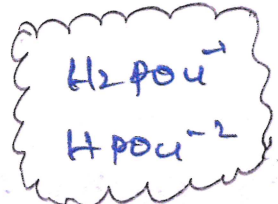 H2PO4⁻¹
HPO4⁻²